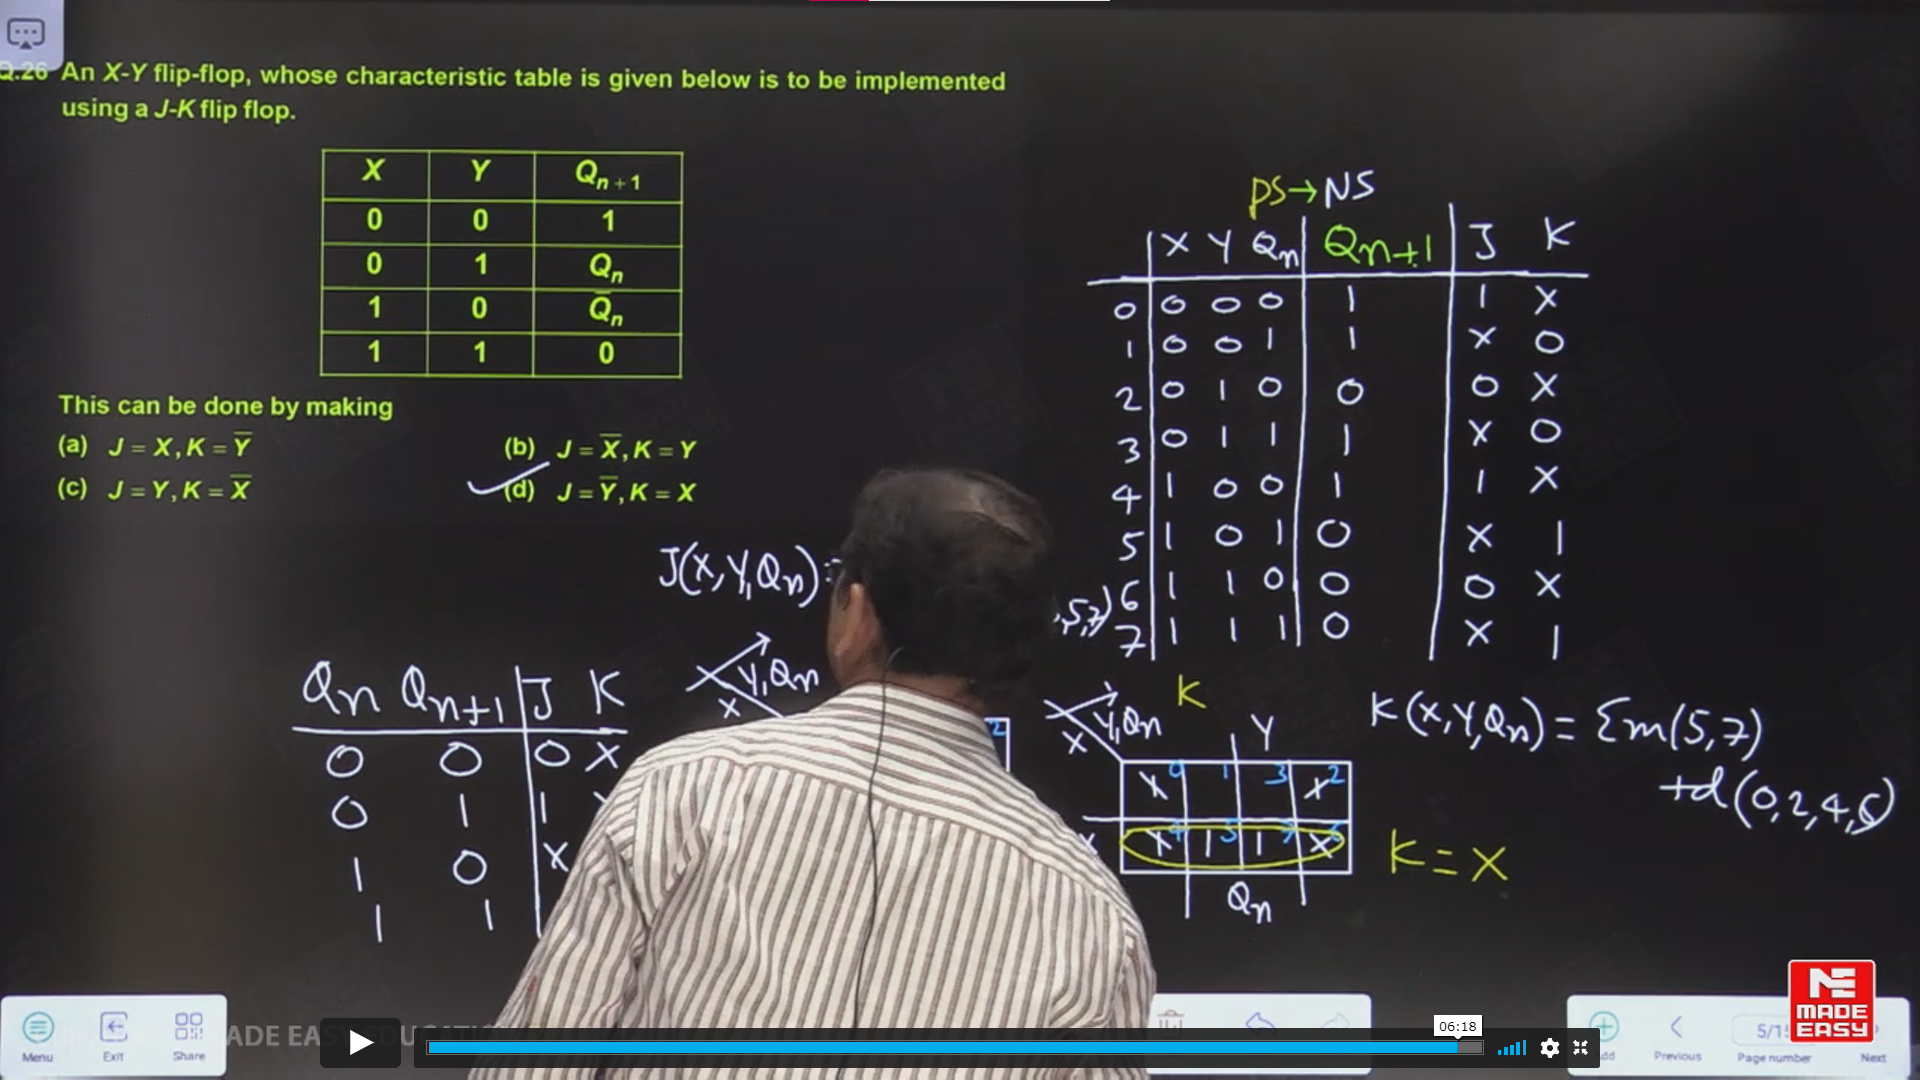 Q.26 An X-Y flip-flop, whose characteristic table is given below is to be implemented
using a J-K flip flop.
X Y Qn+1
0 0 1
0 1 Qn
1 0 Q̅n
1 1 0
This can be done by making
(a) J = X, K = Y̅
(b) J = X̅, K = Y
(c) J = Y, K = X̅
(d) J = Y̅, K = X
PS → NS
X Y Qn Qn+1 J K
0 0 0 0 1 1 X
1 0 0 1 1 X 0
2 0 1 0 0 0 X
3 0 1 1 1 X 0
4 1 0 0 1 1 X
5 1 0 1 0 X 1
6 1 1 0 0 0 X
7 1 1 1 0 X 1
J(X,Y,Qn)
,5,7)
Qn Qn+1 J K
0 0 0 X
0 1 1
1 0 X
1 1
X Y,Qn
2
K
X Y,Qn
Y
X 0 1 3 X 2
X X 4 1 5 1 7 X 6
Qn
K(X,Y,Qn) = Σm(5,7)
+d(0,2,4,6)
K = X
MADE
EASY
ADE EASY EDUCAT
06:18
Menu
Exit
Share
Previous
Page number
Next